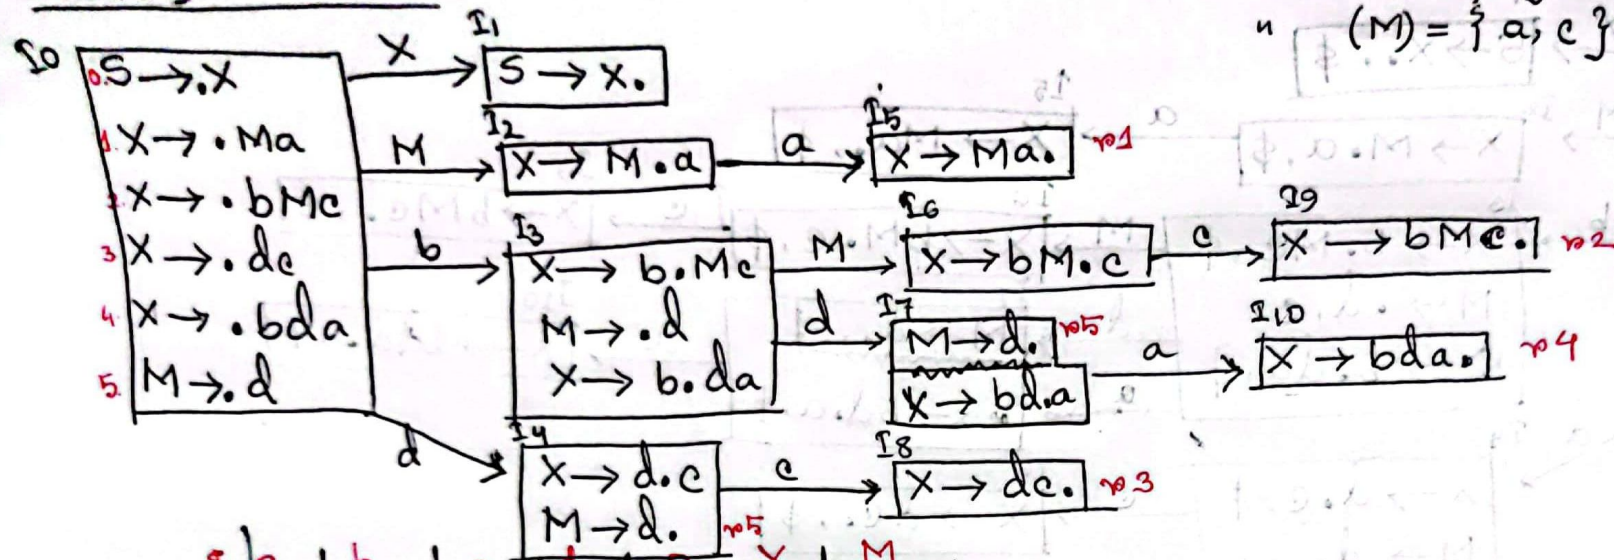 " (M) = { a, c }
I0
0. S → .X
1. X → . Ma
2. X → . bMc
3 X → . dc
4. X → . bda
5. M → . d
X
I1
S → X.
M
I2
X → M . a
a
I5
X → Ma.
r1
b
I3
X → b . Mc
M → . d
X → b . da
M
I6
X → bM . c
c
I9
X → bMc.
r2
d
I7
M → d.
r5
X → bd.a
a
I10
X → bda.
r4
d
I4
X → d.c
M → d.
r5
c
I8
X → dc.
r3